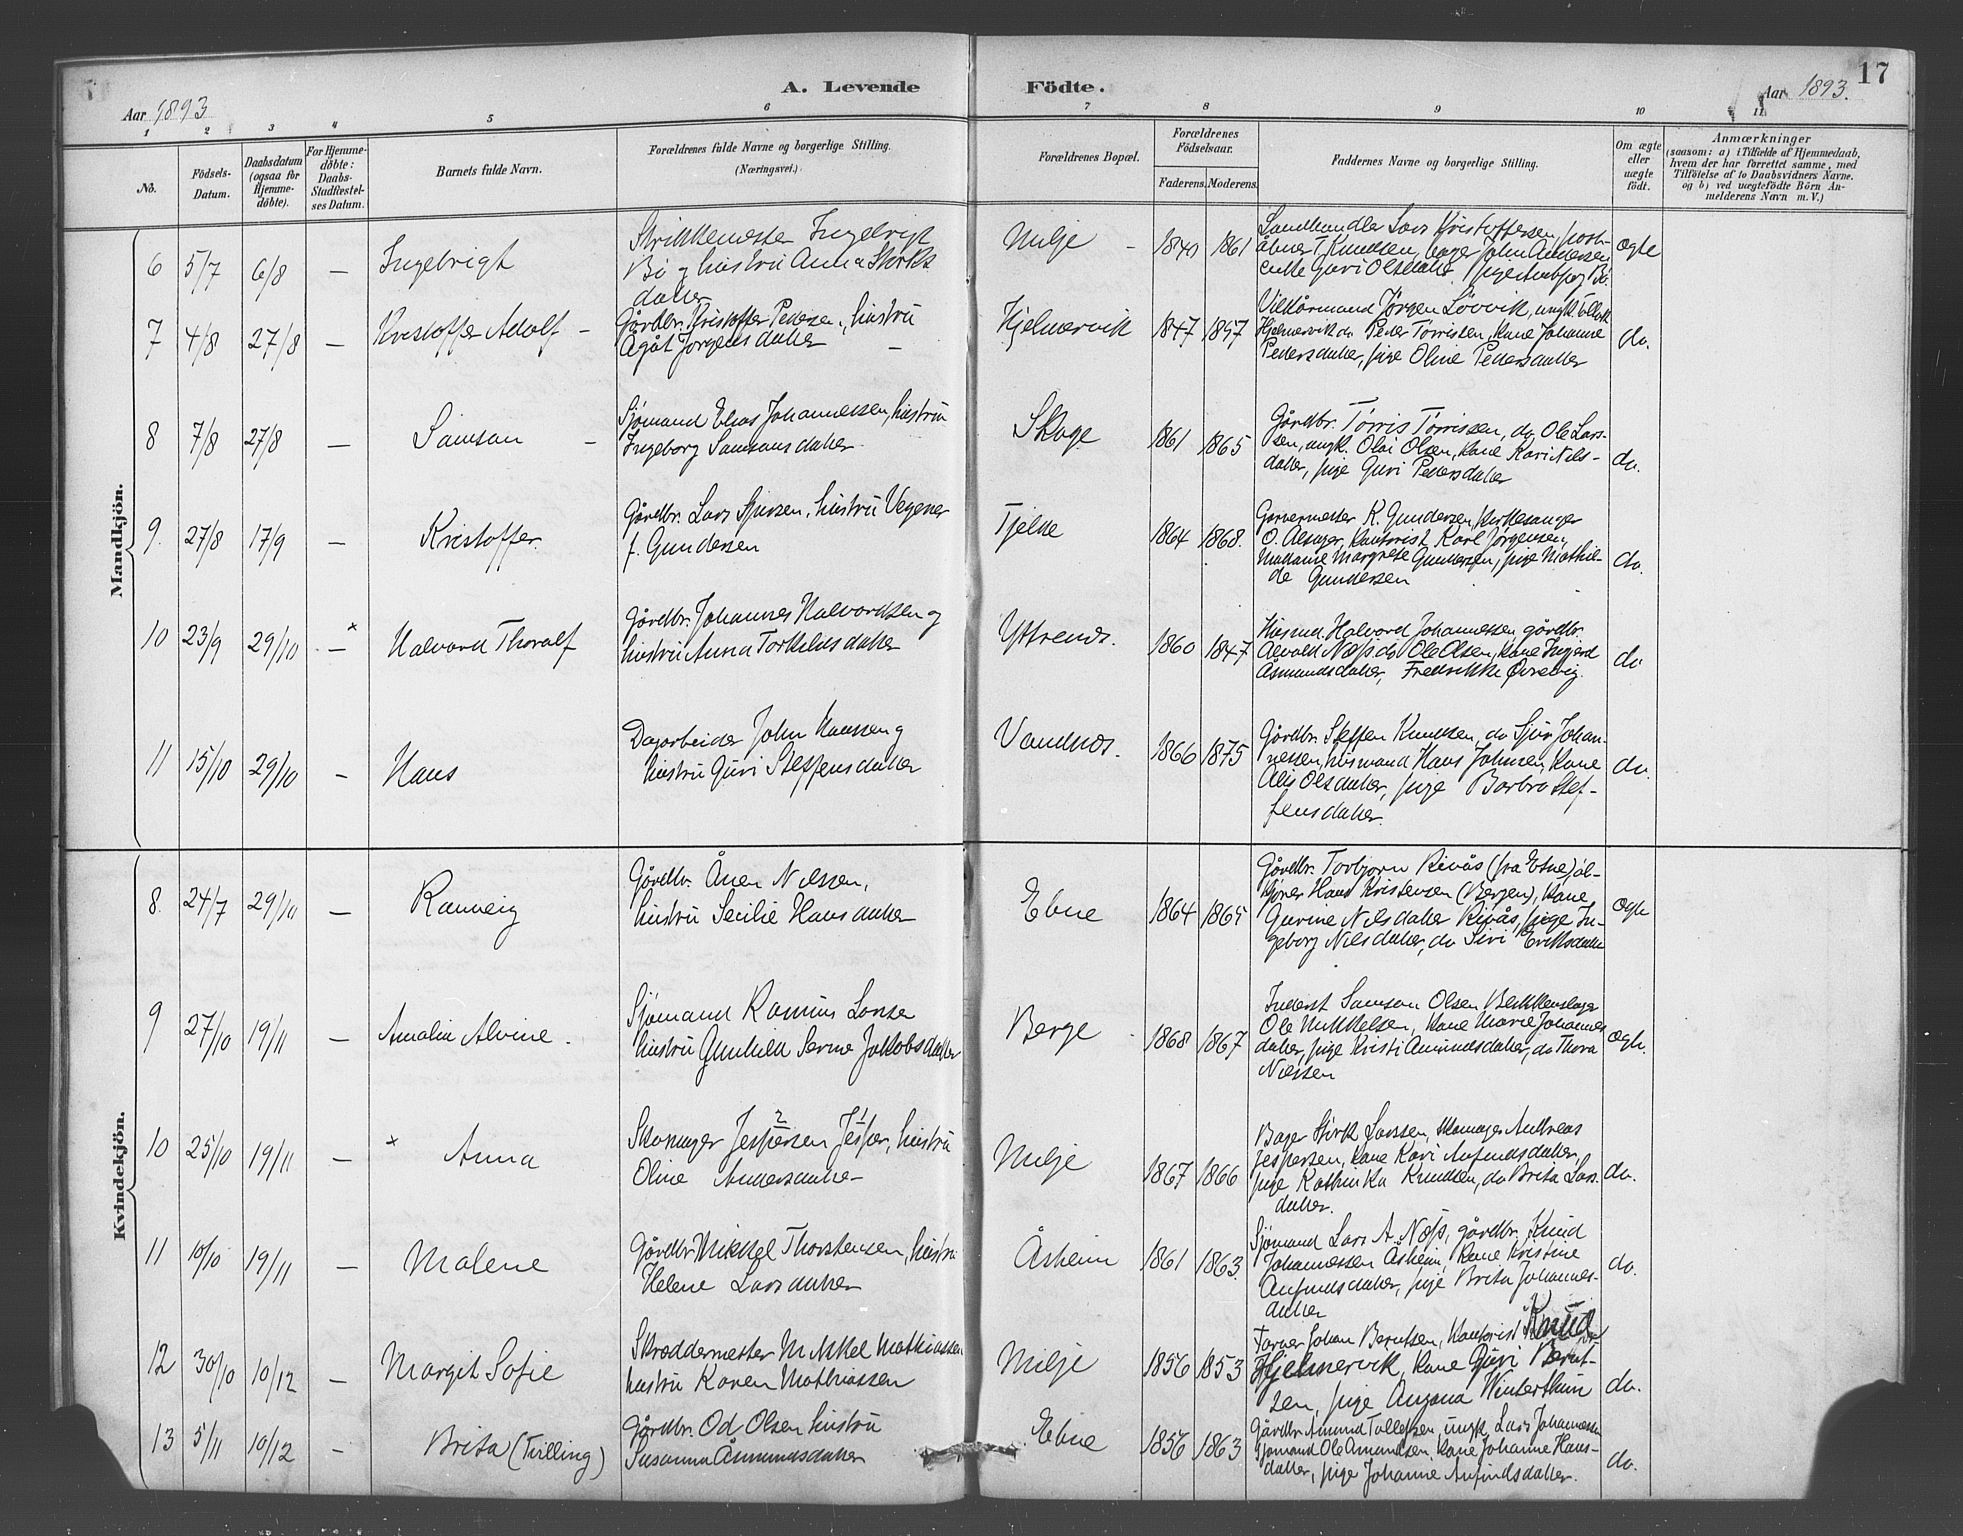 A. Levende Födte.
17
Aar 1893
Aar 1893.
1 2 3 4 5 6 7 8 9 10 11
No.
Födsels-Datum.
Daabsdatum (ogsaa for Hjemme-döbte).
For Hjemme-döbte: Daabs-Stadfæstel-ses Datum.
Barnets fulde Navn.
Forældrenes fulde Navne og borgerlige Stilling. (Næringsvei.)
Forældrenes Bopæl.
Forældrenes Födselsaar.
Faderens. Moderens.
Faddernes Navne og borgerlige Stilling.
Om ægte eller uægte födt.
Anmærkninger
(saasom: a) i Tilfælde af Hjemmedaab, hvem der har forrettet samme, med Tilföielse af to Daabsvidners Navne. og b) ved uægtefödte Börn An-melderens Navn m. V.)
Mandkjön.
6 5/7 6/8 — Ingebrigt
Bø og hustru Anna
daller
Milje - 1861
Landhandler Lars Kristoffersen, post-
åbner T. Knudsen, bager John Andersen
enke Guri Olsdatter, pige
ægte
7 4/8 27/8 — Kristoffer Adolf -
Gårdbr. Kristoffer Pedersen, hustru
Agåt Jørgensdatter -
Hjelmervik 1847 1857
Vilkårmand Jørgen Løvvik, ungk.
Hjelmervik do Peder Torrissen, kone Johanne
Pedersdatter, pige Oline Pedersdatter
do.
8 7/8 27/8 — Samson -
Sjømand Elias Johannessen, hustru
Ingeborg Samsonsdatter
Skoge 1861 1865
Gårdbr. Tørris Tørrissen, do Ole Lars-
sen, ungk. Olai Olsen, kone Kari Nils-
datter, pige Guri Pedersdatter
do.
9. 27/8 17/9 — Kristoffer.
Gårdbr. Lars Sjursen, hustru Vegener
f. Gundersen
Tjelle 1864 1868.
Garvermester K. Gundersen, kirkesanger
O. Alsager, kontorist Karl Jørgensen,
Madame Margrete Gundersen, pige Mathil-
de Gundersen
do.
10 23/9 29/10 — x Halvard Thoralf
Gårdbr. Johannes Halvardsen og
hustru Anna Torkelsdatter
Yttrenes. 1860 1847
Husmd. Halvard Johannessen, gårdbr.
Næss do Ole Olsen, kone
Åsmundsdatter, Fredrikke Øvrevig.
do
11 15/10 29/10 - Hans
Dagarbeider John Hansen og
hustru Guri Steffensdatter
Vandnes. 1866 1875
Gårdbr. Steffen Knudsen, do Sjur Johan-
nessen, husmand Hans Johnsen, kone
Alis Olsdatter, pige Barbro Stef-
fensdatter.
do.
Kvindekjön.
8. 24/7 29/10 — Ranveig
Gårdbr. Ånen Nilssen,
hustru Secilie Hansdatter
Ebne 1864 1865
Gårdbr. Torbjørn Rivås (fra Etne)
Hans Kristensen (Bergen), kone
Gurine Nilsdatter Rivås, pige In-
geborg Nilsdatter, do Siri Eriksdatter
ægte
9 27/10 19/11 — Amalia Alvine.
Sjømand Rasmus Larsen
hustru Gunhild Serine Jakobsdatter
Berge - 1868 1867
Inderst Samson Olsen, Blikkenslager
Ole Mikkelsen, kone Marie Johannes
datter, pige Kristi Amundsdatter, do Thora
Nilssen
ægte.
10 25/10 19/11 — x Anna
2 1
Skomager Jespersen Jesper, hustru
Oline Andersdatter
Milje 1867 1866
Bager Størk Larssen, skomager Andreas
Jespersen, kone Kari Anfindsdatter,
pige Kathinka Knudsen, do Brita Lars-
datter.
do.
11 10/10 19/11 — Malene
Gårdbr. Mikkel Thorstensen, hustru
Helene Larsdatter
Åsheim 1861 1863.
Sjømand Lars A. Næss, gårdbr. Knud
Johannessen Åsheim, kone Kristine
Anfindsdatter, pige Brita Johannes-
datter
do.
12 30/10 10/12 — Margit Sofie
Skræddermester Mikkel Mathiassen
hustru Karen Mathiassen
Milje 1856 1853
Farver Johan Berntsen, kontorist Knud
Hjelmervik, kone Guri Bernt-
zen, pige Winterthun
do.
13 5/11 10/12 — Brita (Tvilling)
Gårdbr. Od Olsen hustru
Susanna Åmundsdatter
Ebne 1856 1863
Gårdbr. Amund Tollefsen, ungk. Lars Johannessen
sjømand Ole Amundsen, kone Johanne Hans-
datter, pige Johanne Anfindsdatter.
do.